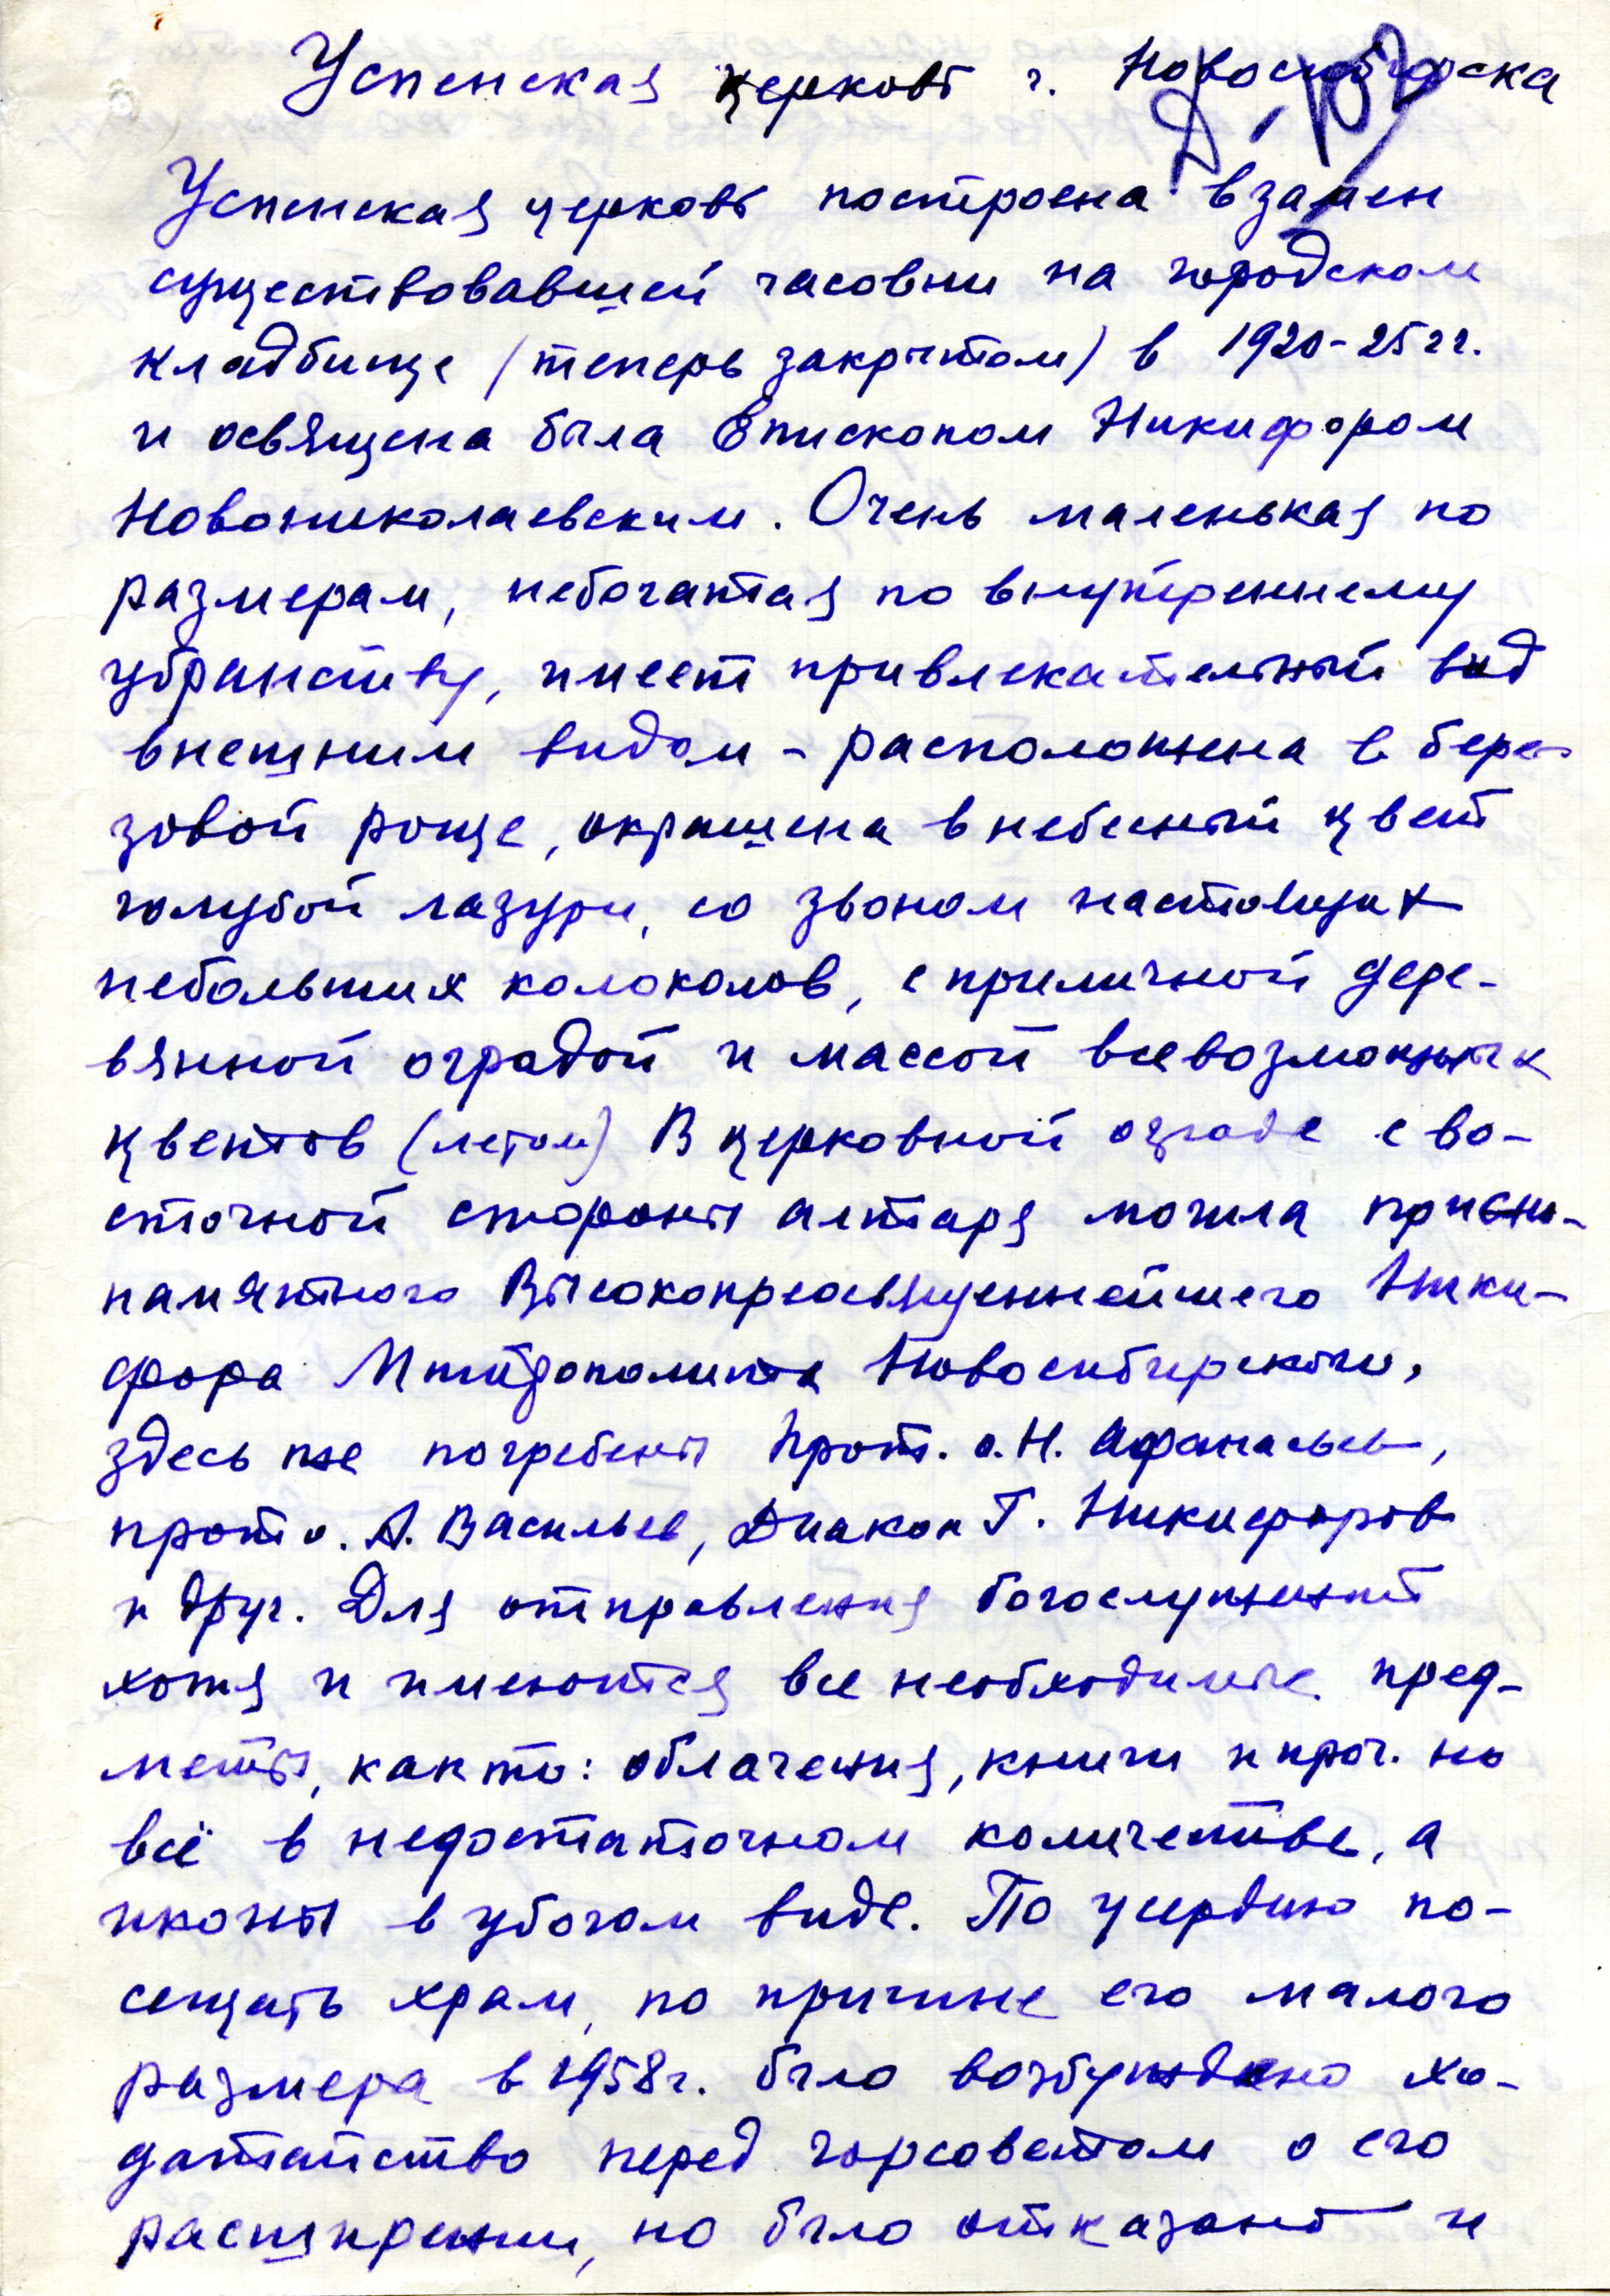 Успенская церковь г. Новосибирска
Д-102
Успенская церковь построена взамен
существовавшей часовни на городском
кладбище (теперь закрытом) в 1920-25 гг.
и освящена была Епископом Никифором
Новониколаевским. Очень маленькая по
размерам, небогатая по внутреннему
убранству, имеет привлекательный вид
внешним видом - расположена в бере-
зовой роще, окрашена в небесный цвет
голубой лазури, со звоном настоящих
небольших колоколов, с приличной дере-
вянной оградой и массой всевозможных
цветов (летом) В церковной ограде с во-
сточной стороны алтаря могила присно-
памятного Высокопреосвященнейшего Ники-
фора Митрополита Новосибирского,
здесь же погребены Прот. о. Н. Афанасьев,
прот о. А. Васильев, Диакон Г. Никифоров
и друг. Для отправления богослужений
хотя и имеются все необходимые пред-
меты, как то: облачения, книги и проч. но
всё в недостаточном количестве, а
иконы в убогом виде. По усердию по-
сещать храм, по причине его малого
размера в 1958 г. было возбуждено хо-
датайство перед горсоветом о его
расширении, но было отказано и